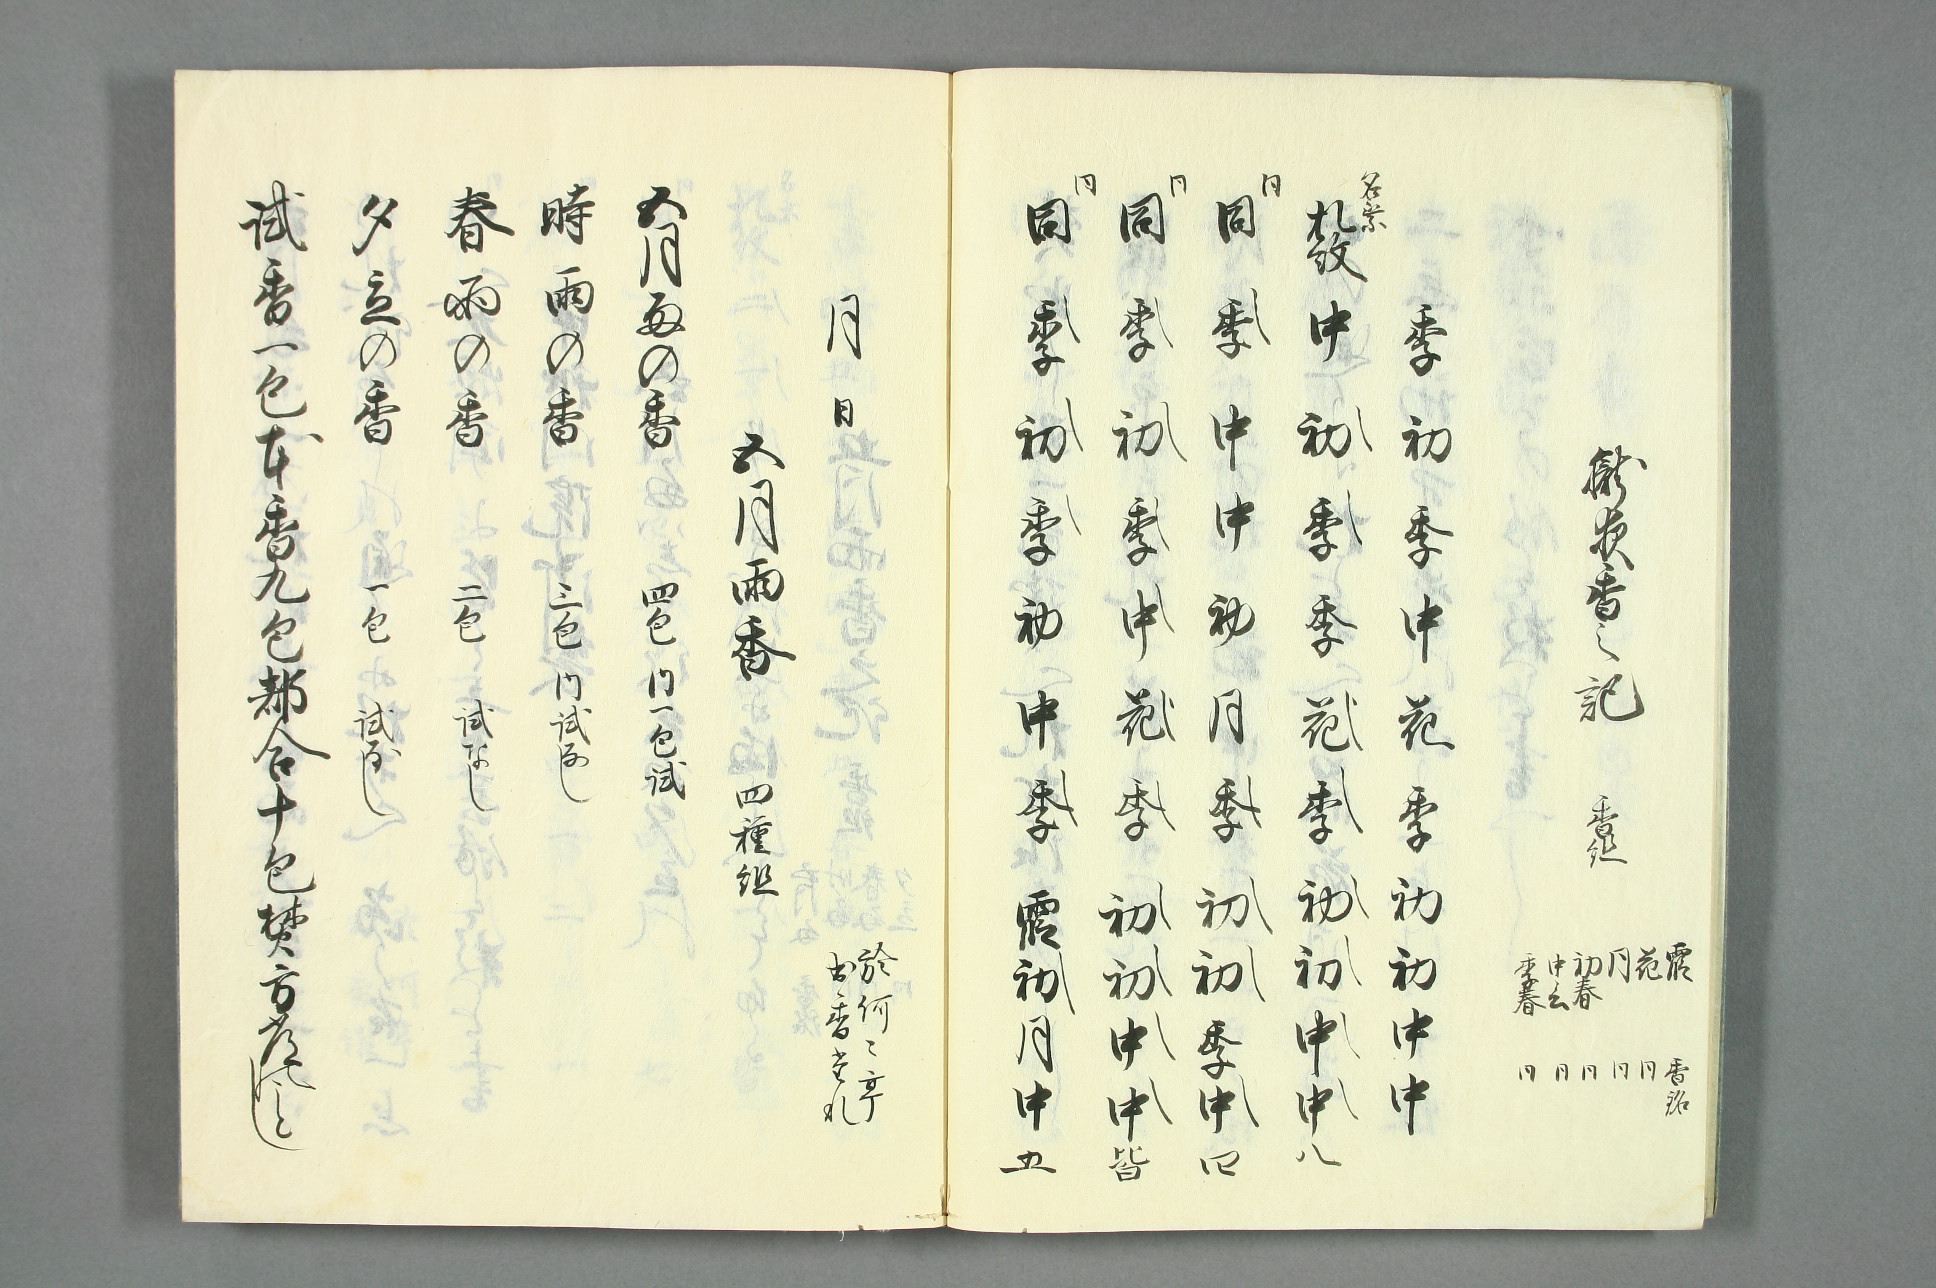 香之記 香組
霞 香銘
花 同
月 同
初春 同
中春 同
季春 同
季初季中花季初初中中
名乗 札紋 中初季季花季初初中中八
同 同 季中中初月季初初季中四
同 同 季初季中花季初初中中皆
同 同 季初季初中季霞初月中五
月日
於何之亭
出香
五月雨香 四種組
五月雨の香 四包 内一包試
時雨の香 三包 内試なし
春雨の香 二包 試なし
夕立の香 一包 試なし
試香一包本香九包都合十包焚方